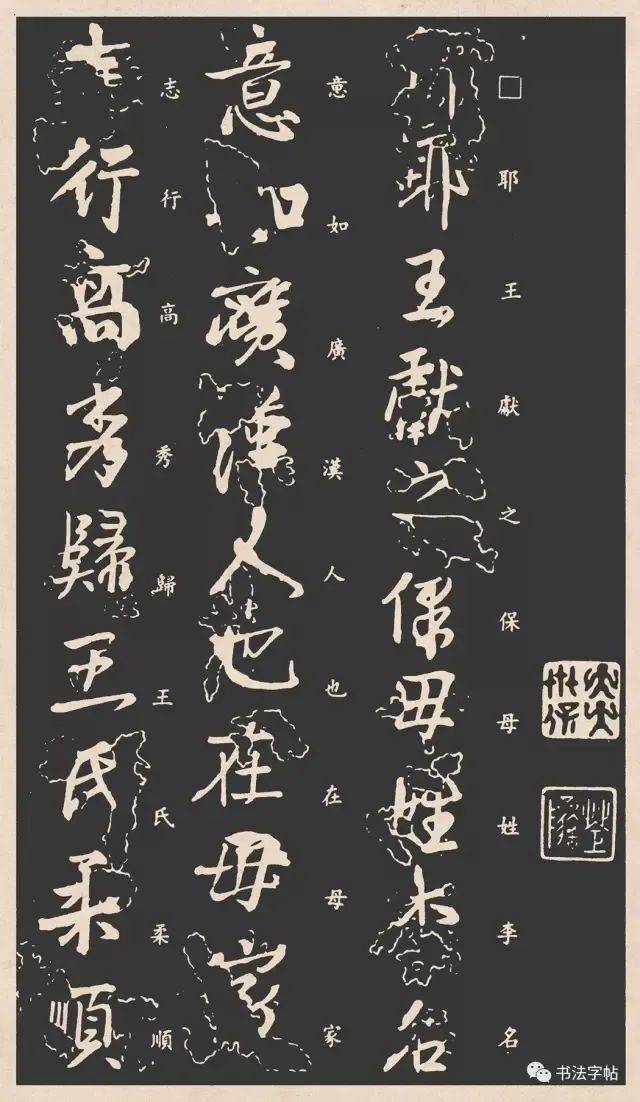 □耶王獻之保母姓李名
意如廣漢人也在母家
志行高秀歸王氏柔順
书法字帖